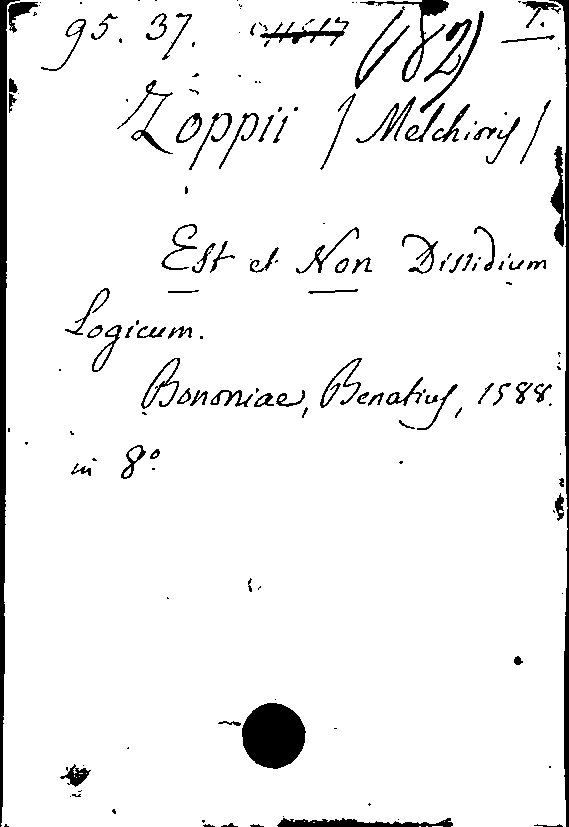 95. 37. (182) 1.
Zoppii / Melchioris /
Est et Non Dissidium
Logicum.
Bononiae, Benatius, 1588.
in 8º